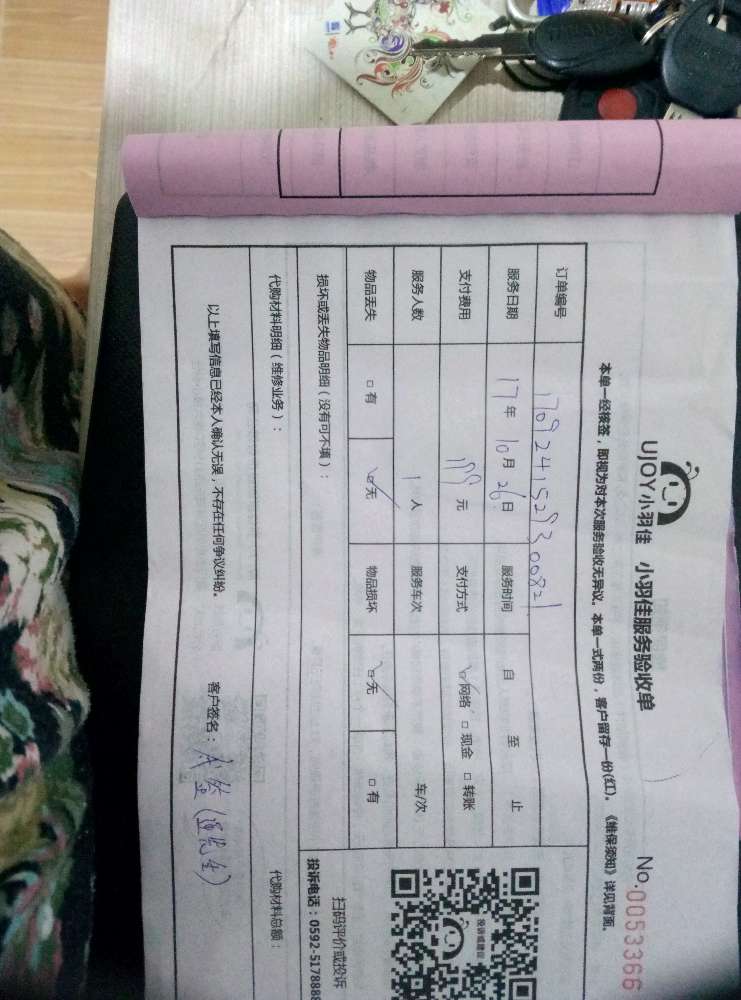 UJOY小羽佳 小羽佳服务验收单
No.0053366
本单一经核签，即视为对本次服务验收无异议。本单一式两份，客户留存一份(红)。《维保须知》详见背面。
订单编号 170924152930082
服务日期 17年10月26日 服务时间 自 至 止
支付费用 199元 支付方式 网络 现金 转账
服务人数 1人 服务车次 车/次
物品丢失 有 无 物品损坏 无 有
损坏或丢失物品明细（没有可不填）：
代购材料明细（维修业务）： 代购材料总额：
以上填写信息已经本人确认无误，不存在任何争议纠纷。 客户签名：
投诉或建议
扫码评价或投诉
投诉电话：0592-5178888